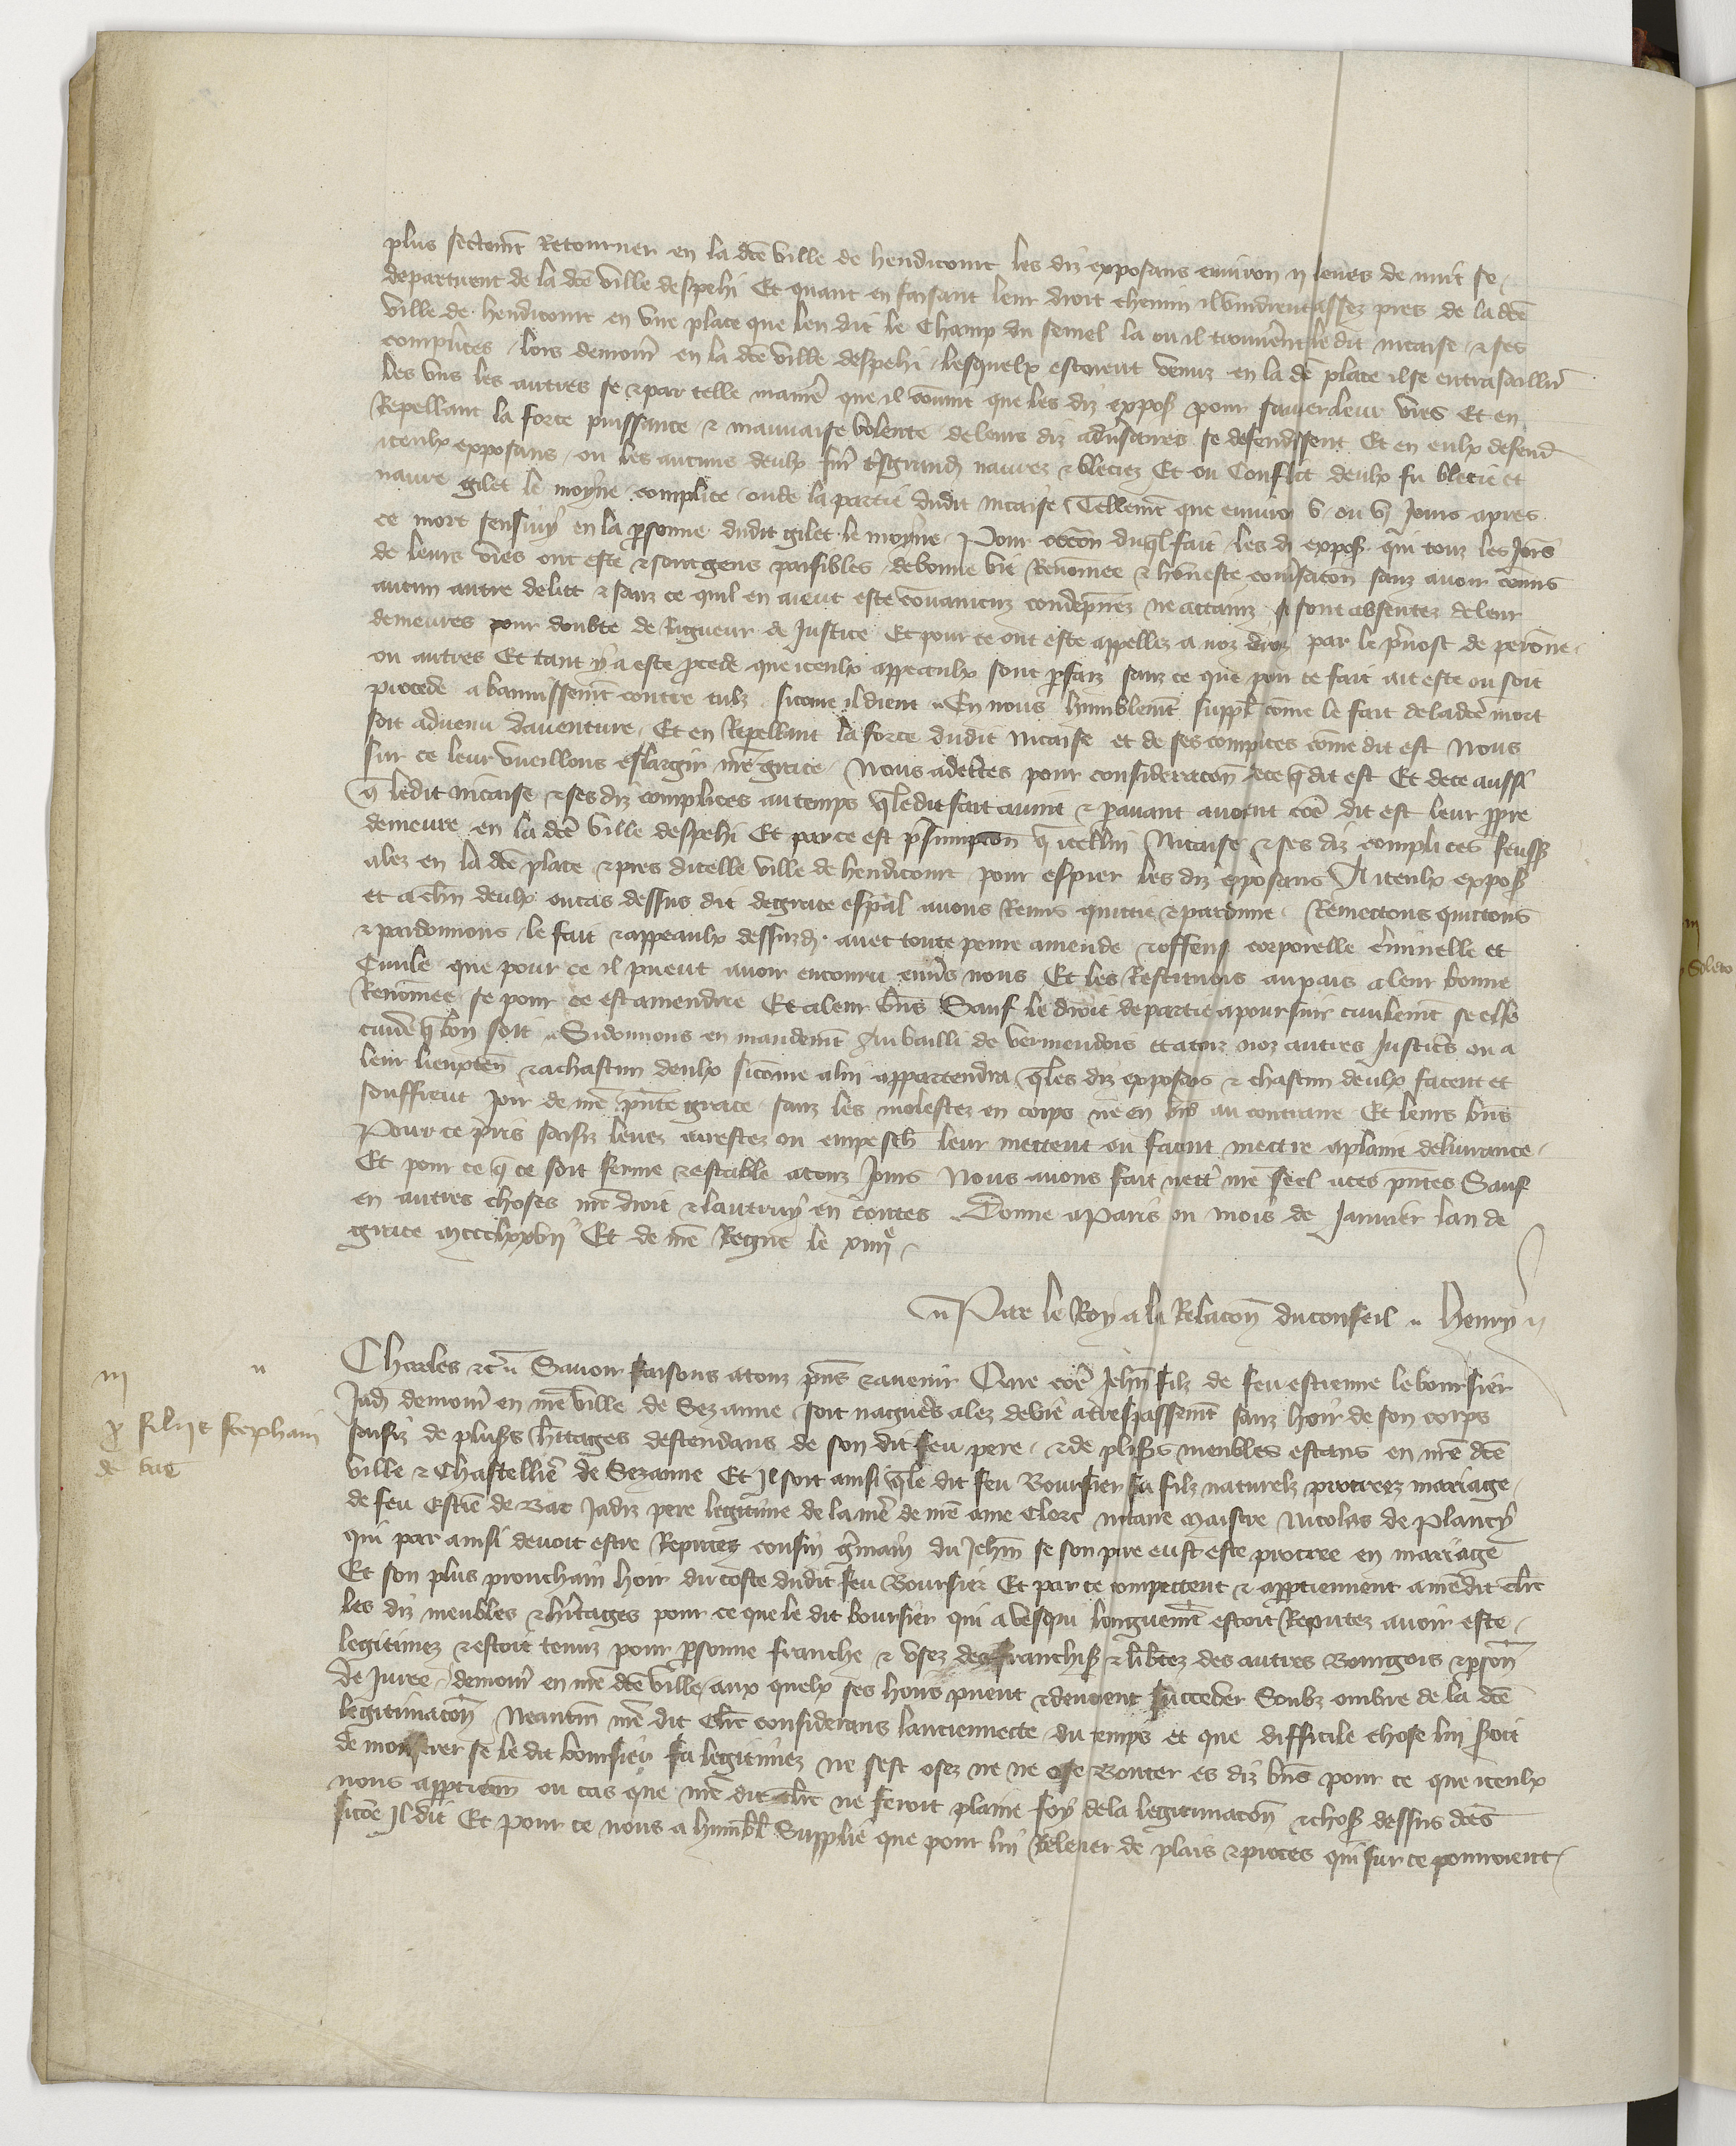 plus sectemt Retourner en la dce ville de hendicourt les diz exposans environ ij leues de nuit se
departirent de la dce ville despehi Et quant en faisant leur droit chemin il vindrent assez pres de la dce
ville de hendicourt en une place que len dit le Champ du semel la ou il trouverent le dit nicaise & ses
complices lors demour en la dce ville despehi lesquelx estoient venuz en la de place ilse entrasaillir
les uns les autres se & par telle manier que il convint que les diz expos pour sauver leur vies Et en
Repellant la force puissance & mauvaise volente de leurs diz adversaires se defendissent Et en eulx defend
iceulx exposans ou les aucuns deulx fur tresgrand navrez & bleciez Et ou Conflit deulx fu blecie et
navre gilet le moyne complice ou de la partie dudit nicaise Tellemt que environ v ou vj Jours apres
ce mort sensuivy en la psonne dudit gilet le moyne Pour occon duql fait les d expos qui touz les Jors
de leurs vies ont este & sont gens paisibles de bonne vie Renomee & honneste conversacon sanz avoir comis
aucun autre delict & sanz ce quil en aieut este convaincuz condepnez ne attains se sont absentez de leur
demeures pour doubte de Rigueur de Justice Et pour ce ont este appellez a noz droiz par le prevost de peronne
ou autres Et tant y a este procede que iceulx appeaulx sont pfaiz sanz ce que pour ce fait ait este ou soit
procede a bannissemt contre eulz sicome il dient En nous humblemt suppl come le fait de la dce mort
soit advenu daventure Et en Repellant la force dudit nicaise et de ses complices come dit est Nous
sur ce leur vueillons eslargir nre grace Nous adcertes pour consideracon de ce q dit est Et de ce aussi
q ledit nicaise & ses diz complices au temps q ledit fait avint & pavant avoient coe dit est leur ppre
demeure en la dce ville despehi Et par ce est presumpcon q icellui Nicaise & ses diz complices feuss
alez en la dce place & pres dicelle ville de hendicourt pour espier les diz exposans A iceulx expos
et a chun deulx ou cas dessus dit de grace espal avons Remis quictie & pardonne Remectons quictons
& pardonnons le fait & appeaulx dessusd avec toute peine amende & offens corporelle criminelle et
Civile que pour ce il pueut avoir encouru envers nous Et les Restituons au pais a leur bonne
Renomee se pour ce est amendrie Et a leur biens Sauf le droit de partie a poursuir civilemt se elle
cuide q bon soit Si donnons en mandemt Au bailli de vermendois et a touz noz autres Justices ou a
leur lieuxten & a chascun deulx sicome a lui appartendra q les diz exposans & chascun deulx facent et
souffreut Joir de nre pnte grace sanz les molestez en corps ne en biens au contraire Et leurs biens
Pour ce pris saisiz levez arrestez ou empesch leur mettent ou facent mectre a plaine delivrance
Et pour ce q ce soit ferme & estable a touz Jours Nous avons fait mettr nre seel a ces pntes Sauf
en autres choses nre droit & lautruy en toutes Donne a Paris ou mois de Janvier lan de
grace mccclxxvij Et de nre Regne le xiiije

Par le Roy a la Relacon du conseil Henry

Charles &c Savoir Faisons a touz pns & avenir Que coe Jehn Filz de feu estienne le boursier
Jad demour en nre ville de Sezanne soit nagueres alez de vie a trespassemt sanz hoir de son corps
saisiz de plusrs hitages descendans de son dit feu pere & de plusrs meubles estans en nre dce
ville & Chastellie de Sezanne Et Il soit ainsi q le dit feu Boursier Fu filz naturelz procreez mariage
de feu Estie de Bar Jadiz pere legitime de la me de nre ame Clerc notaire Maistre Nicolas de Plancy
qui par ainsi devoit estre Reputez cousin gmain du Jehn se son pere eust este procree en mariage
Et son plus prouchain hoir du coste dudit feu Boursier Et par ce competent & appartiennent a nredit clerc
les diz meubles & hitages pour ce que le dit boursier qui a vesqu longuemt estoit Reputez avoir este
legitimez & estoit tenuz pour psonne franche & usez des franchis & libtez des autres Bourgois & pson
de Juree demour en nre dce ville aux quelx ses hoirs puent & devoient succeder Soubz ombre de la dce
legitimacon Neantm nre dit clerc considerans lanciennete du temps et que difficile chose lui seroit
de monstrer se le dit boursier fu legitimez ne sest osez ne ne ose Bouter es diz biens pour ce que iceulx
nous apptien ou cas que nre dit clerc ne feroit plaine foy de la legitimacon & chos dessus dces
sicoe Il dit Et Pour ce nous a humbl Supplie que pour lui Relever de plais & proces qui sur ce pourroient
iij
p filijs stephani
de bar